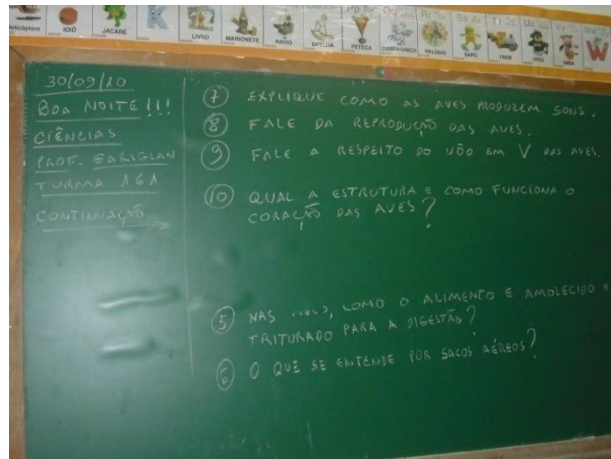 IOIÔ
JACARÉ
LIVRO
MARIONETE
NAVIO
OVELHA
PETECA
RELÓGIO
SAPO
TREM
URSO
30/09/10
BOA NOITE!!!
CIÊNCIAS
PROF. GARIGLAN
TURMA A6A
CONTINUAÇÃO
7 EXPLIQUE COMO AS AVES PRODUZEM SONS.
8 FALE DA REPRODUÇÃO DAS AVES.
9 FALE A RESPEITO DO VÔO EM V DAS AVES.
10 QUAL A ESTRUTURA E COMO FUNCIONA O
CORAÇÃO DAS AVES?
5 NAS AVES, COMO O ALIMENTO É AMOLECIDO E
TRITURADO PARA A DIGESTÃO?
6 O QUE SE ENTENDE POR SACOS AÉREOS?